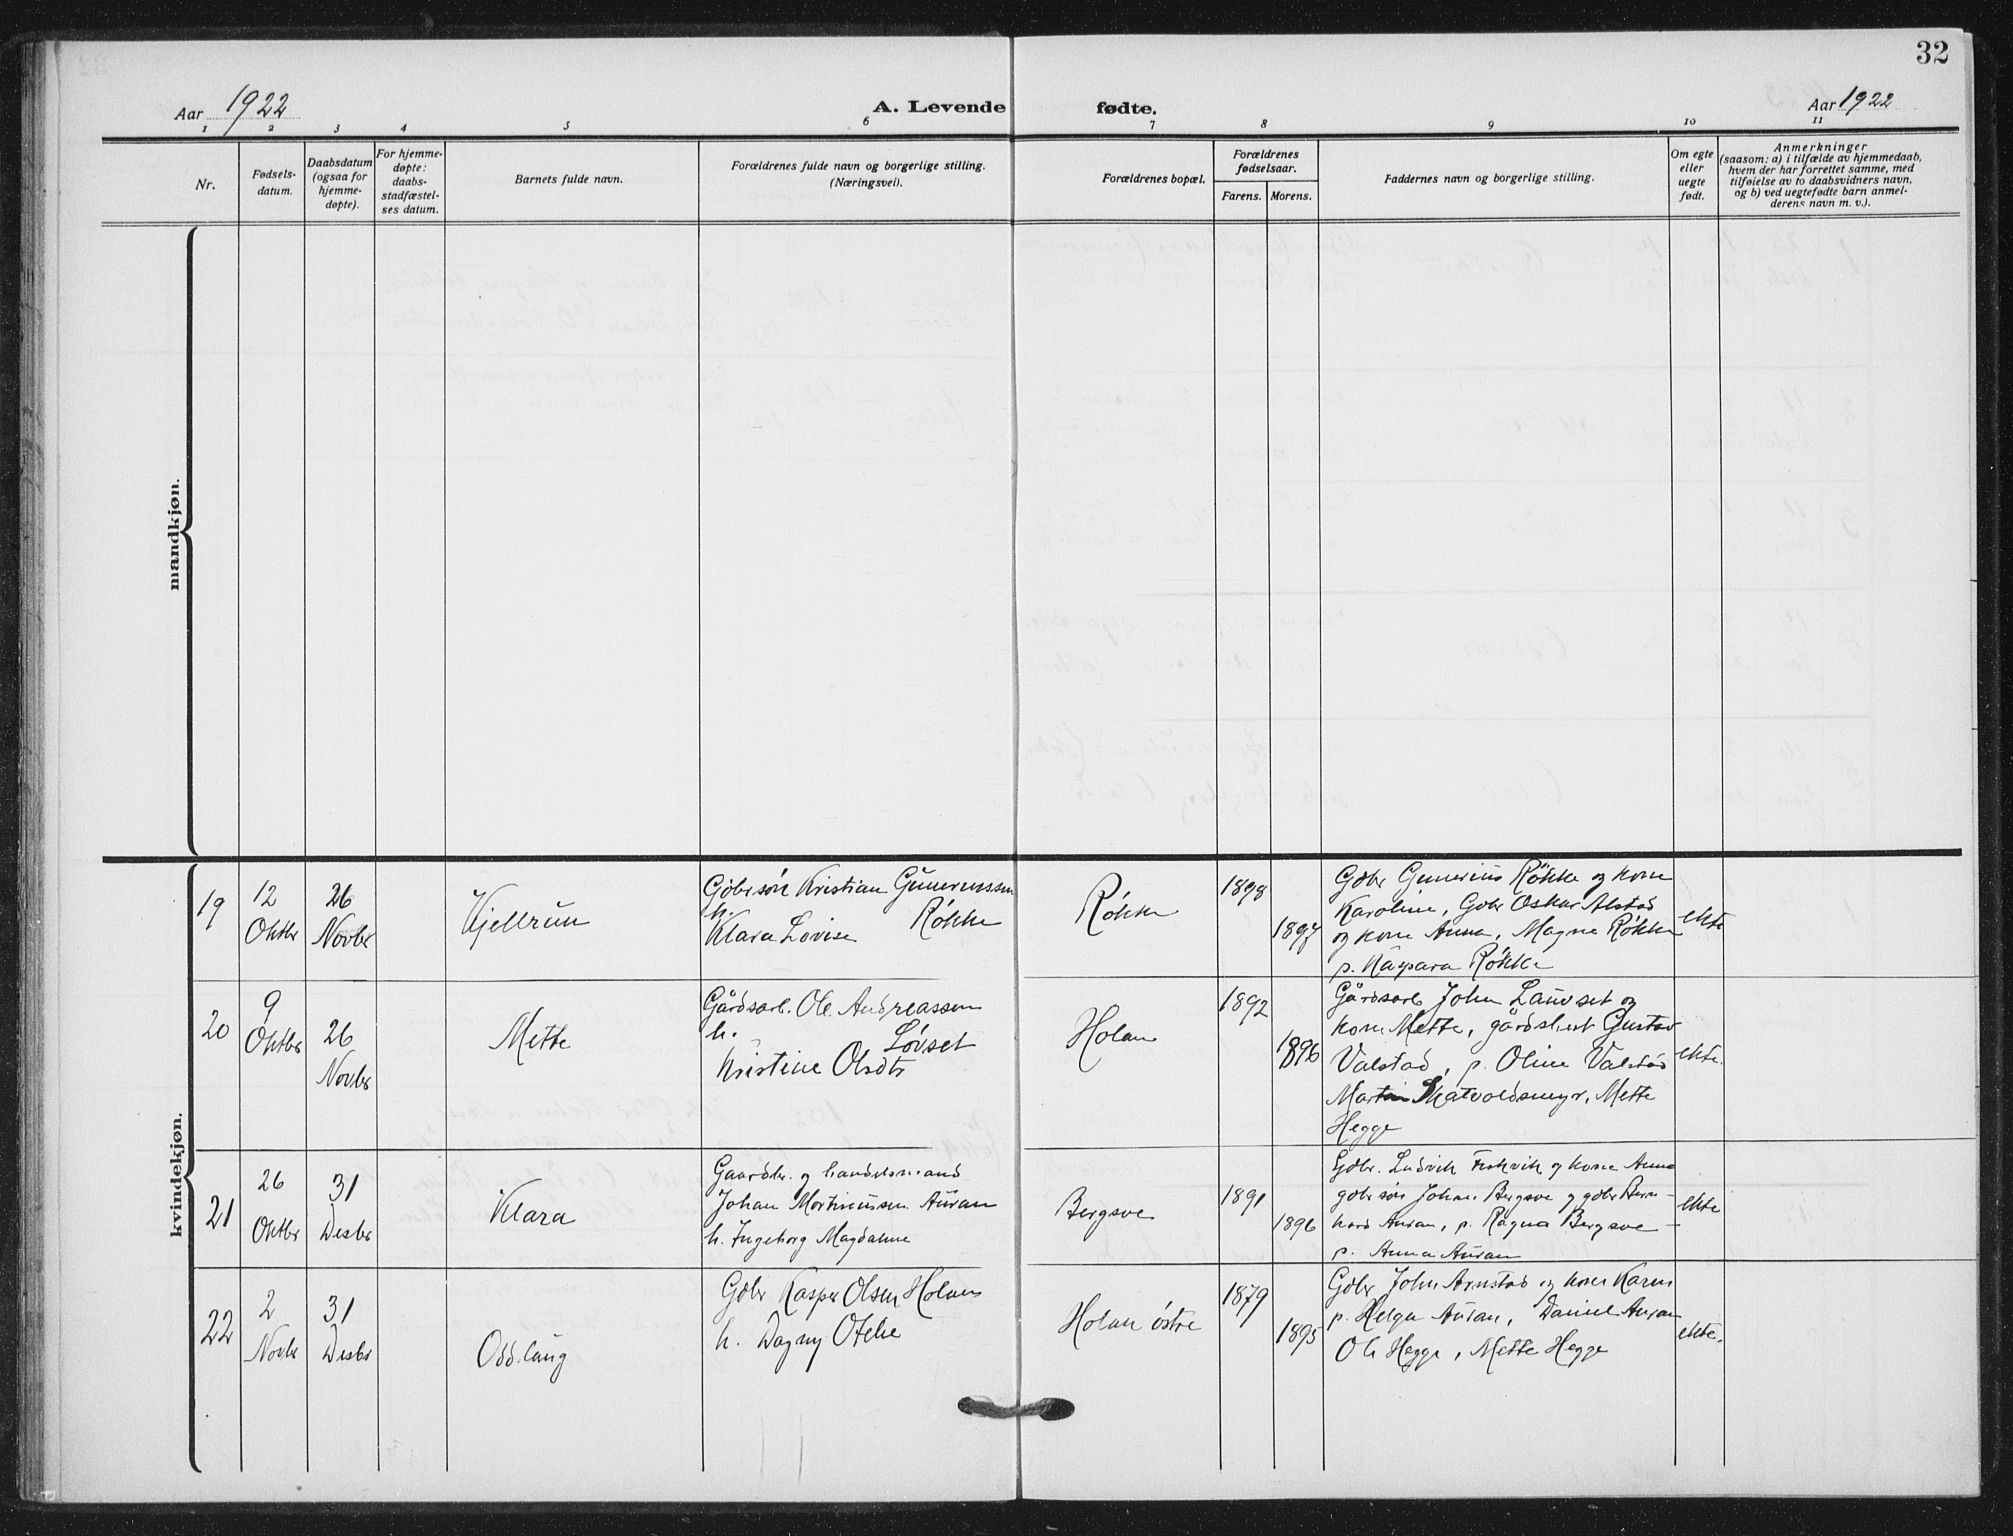 32
Aar 1922
A. Levende fødte.
Aar 1922
1 2 3 4 5 6 7 8 9 10 11
Nr.
Fødsels-
datum.
Daabsdatum
(ogsaa for
hjemme-
døpte).
For hjemme-
døpte:
daabs-
stadfæstel-
ses datum.
Barnets fulde navn.
Forældrenes fulde navn og borgerlige stilling.
(Næringsvei).
Forældrenes bopæl.
Forældrenes
fødselsaar.
Farens. Morens.
Faddernes navn og borgerlige stilling.
Om egte
eller
uegte
født.
Anmerkninger
(saasom: a) i tilfælde av hjemmedaab,
hvem der har forrettet samme, med
tilføielse av to daabsvidners navn,
og b) ved uegtefødte barn anmel-
derens navn m. v.).
mandkjøn.
kvindekjøn.
19
12
Oktbr
26
Novbr
Kjellrun
Gbrsøn Kristian Gunerussen
h. Røkke
Klara Lovise
Røkke
1898
1897
Gdbr Gunerius Røkke og kone
Karoline, Gdbr Oskar Alstad
og kone Anna, Magne Røkke
p. Kaspara Røkke
ekte
20
9
Oktbr
26
Novbr
Mette
Gårdsarb. Ole Andreassen
h. Løvset
Kristine Olsdtr
Holan
1892
1896
Gårdsarb John Lauvset og
kone Mette, gårdsbest Gustav
Valstad, p. Oline Valstad
Martin Skatvoldsmyr, Mette
Hegge
ekte.
21
26
Oktbr
31
Desbr
Klara
Gaardbr. og handelsmand
Johan Martinussen Auran
h. Ingeborg Magdalene
Bergsve
1891
1896
Gdbr. Ludvik Fiskvik og kone Anna
gdbrsøn Johan Bergsve og gdbr Bern-
hard Auran, p. Ragna Bergsve -
p. Anna Auran
ekte
22
2
Novbr
31
Desbr
Oddlaug
Gdbr Kasper Olsen Holan
h. Dagny Otelie
Holan østre
1879
1895
Gdbr John Arnstad og kone Karen
p. Helga Auran, Daniel Auran
Ole Hegge, Mette Hegge
ekte.